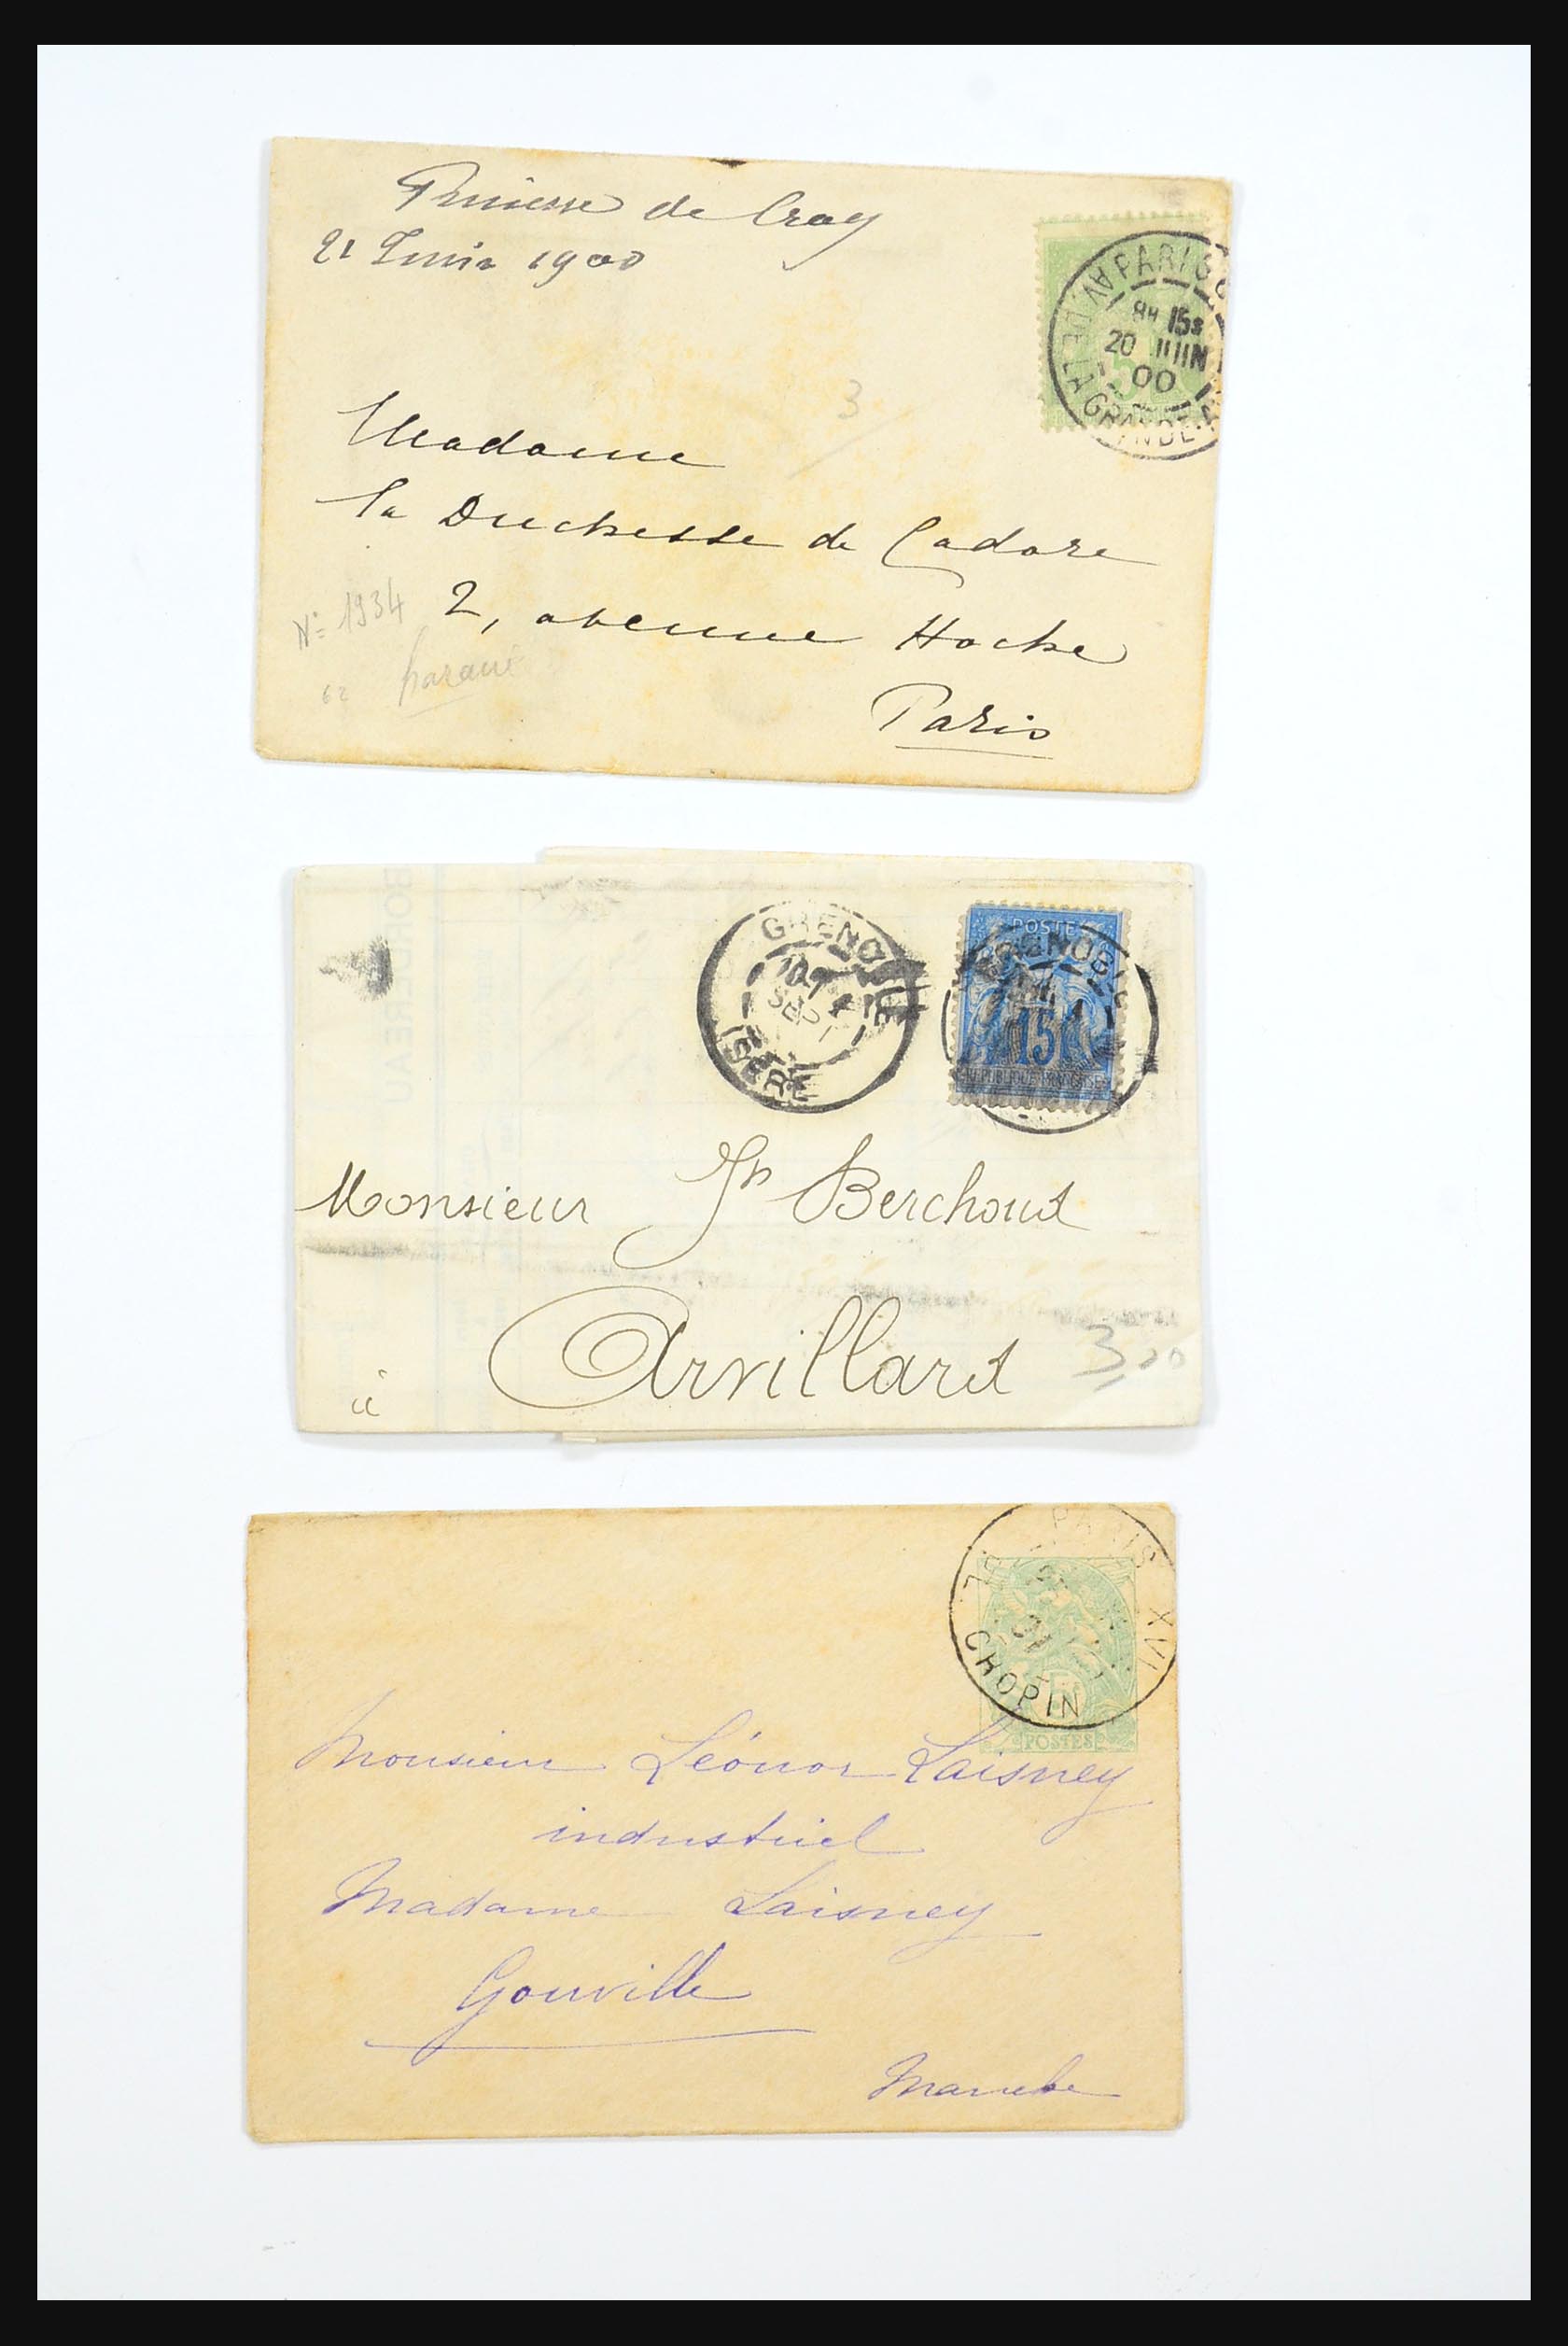 Princesse de Croy
21 Juin 1900
PARIS
AV. DE LA GRANDE
8H 15S
20 JUIN
00
5
3
Madame
la Duchesse de Cadore
2, avenue Hoche
Paris
No 1934
62
BORDEREAU
GRENOBLE
SEPT
ISERE
POSTE
GRENOBLE
15
REPUBLIQUE FRANCAISE
Monsieur Jh Berchout
à Arvillard
3,20
PARIS XVI
PL. CHOPIN
5
POSTES
Monsieur Léonor Laisney
industriel
Madame Laisney
Gouville
Manche